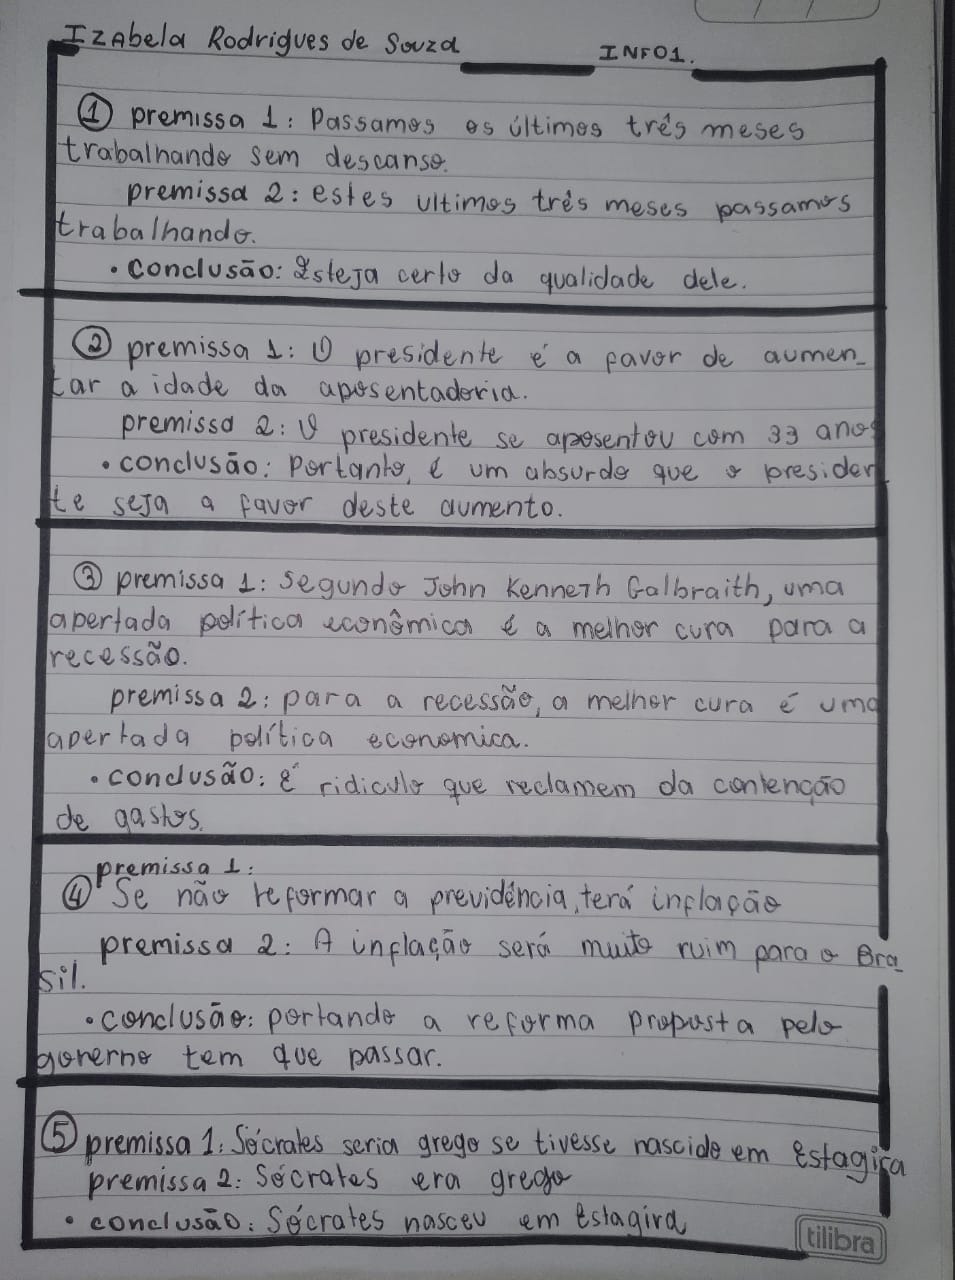 Izabela Rodrigues de Souza INFO1.
① premissa 1: Passamos os últimos três meses
trabalhando sem descanso.
premissa 2: estes ultimos três meses passamos
trabalhando.
• conclusão: Esteja certo da qualidade dele.
② premissa 1: O presidente é a favor de aumen-
tar a idade da aposentadoria.
premissa 2: O presidente se aposentou com 33 anos
• conclusão: Portanto, é um absurdo que o presiden
te seja a favor deste aumento.
③ premissa 1: Segundo John Kenneth Galbraith, uma
apertada política econômica é a melhor cura para a
recessão.
premissa 2: para a recessão, a melhor cura é uma
apertada política economica.
• conclusão: É ridiculo que reclamem da contenção
de gastos.
premissa 1:
④ Se não reformar a previdência, terá inflação
premissa 2: A inflação será muito ruim para o Bra-
sil.
• conclusão: portando a reforma proposta pelo
governo tem que passar.
⑤ premissa 1: Sócrates seria grego se tivesse nascido em Estagira
premissa 2: Sócrates era grego
• conclusão: Sócrates nasceu em Estagira
tilibra